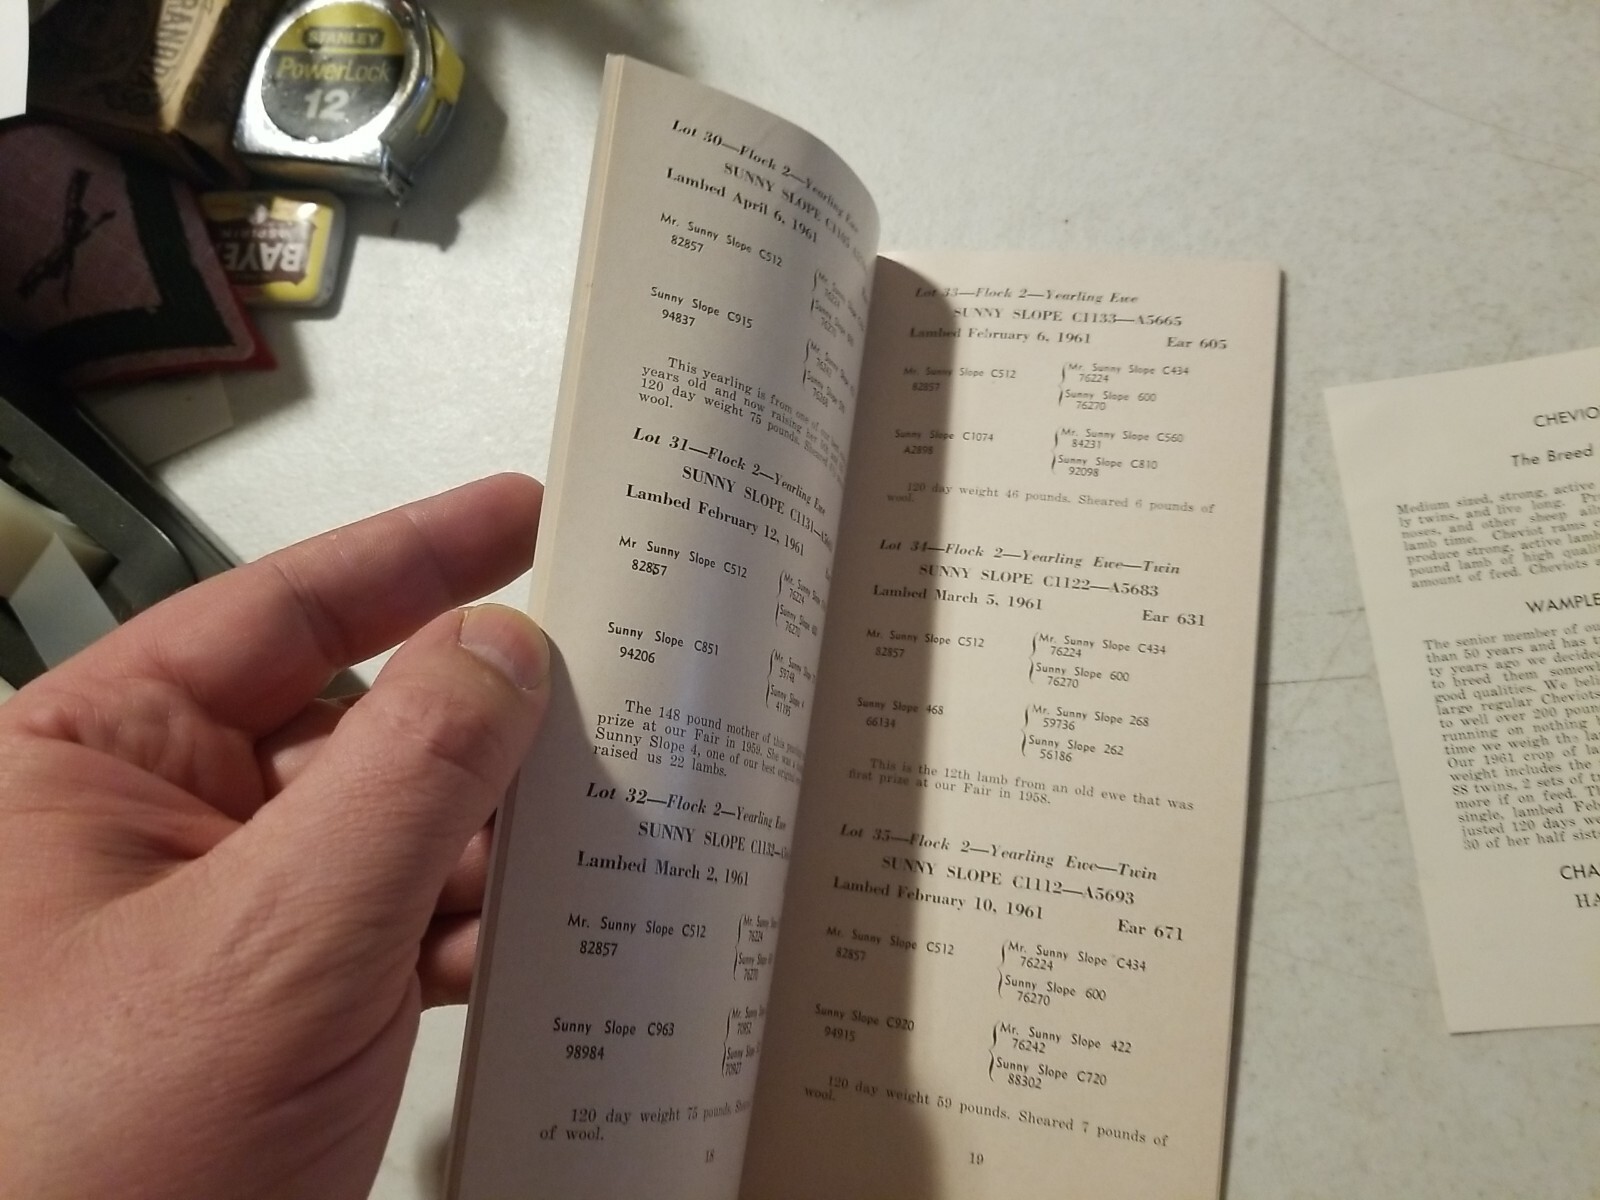 STANLEY
PowerLock
12'
BAYER
ASPIRIN
Lot 30—Flock 2—Yearling Ewe
SUNNY SLOPE
Lambed April 6, 1961
Mr. Sunny Slope C512
82857
Sunny Slope C915
94837
This yearling is from one of our best
years old and now raising her
120 day weight 75 pounds. Sheared
wool.
Lot 31—Flock 2—Yearling Ewe
SUNNY SLOPE C1131
Lambed February 12, 1961
Mr Sunny Slope C512
82857
Mr. Sunny Slope
76224
Sunny Slope
76270
Sunny Slope C851
94206
Mr. Sunny
Sunny Slope 4
41195
The 148 pound mother of this yearling
prize at our Fair in 1959. She was a
Sunny Slope 4, one of our best original
raised us 22 lambs.
Lot 32—Flock 2—Yearling Ewe
SUNNY SLOPE C1132
Lambed March 2, 1961
Mr. Sunny Slope C512
82857
Mr. Sunny
76224
Sunny Slope
76270
Sunny Slope C963
98984
Mr. Sunny
Sunny Slope
120 day weight 75 pounds
of wool.
18
Lot 33—Flock 2—Yearling Ewe
SUNNY SLOPE C1133—A5665
Lambed February 6, 1961 Ear 605
Mr. Sunny Slope C512
82857
Mr. Sunny Slope C434
76224
Sunny Slope 600
76270
Sunny Slope C1074
A2898
Mr. Sunny Slope C560
84231
Sunny Slope C810
92098
120 day weight 46 pounds. Sheared 6 pounds of
wool.
Lot 34—Flock 2—Yearling Ewe—Twin
SUNNY SLOPE C1122—A5683
Lambed March 5, 1961 Ear 631
Mr. Sunny Slope C512
82857
Mr. Sunny Slope C434
76224
Sunny Slope 600
76270
Sunny Slope 468
66134
Mr. Sunny Slope 268
59736
Sunny Slope 262
56186
This is the 12th lamb from an old ewe that was
first prize at our Fair in 1958.
Lot 35—Flock 2—Yearling Ewe—Twin
SUNNY SLOPE C1112—A5693
Lambed February 10, 1961 Ear 671
Mr. Sunny Slope C512
82857
Mr. Sunny Slope C434
76224
Sunny Slope 600
76270
Sunny Slope C920
94915
Mr. Sunny Slope 422
76242
Sunny Slope C720
88302
120 day weight 59 pounds. Sheared 7 pounds of
wool.
19
CHEVIO
The Breed
Medium sized, strong, active
ly twins, and live long.
noses, and other sheep
lamb time. Cheviot rams
produce strong, active lamb
pound lamb of high quali
amount of feed. Cheviots
WAMPLE
The senior member of ou
than 50 years and has
ty years ago we decided
to breed them somewh
good qualities. We beli
large regular Cheviots
to well over 200 poun
running on nothing
time we weigh the la
Our 1961 crop of la
weight includes the
SS twins, 2 sets of
more if on feed.
single, lambed Feb
justed 120 days we
30 of her half sist
CHA
HA